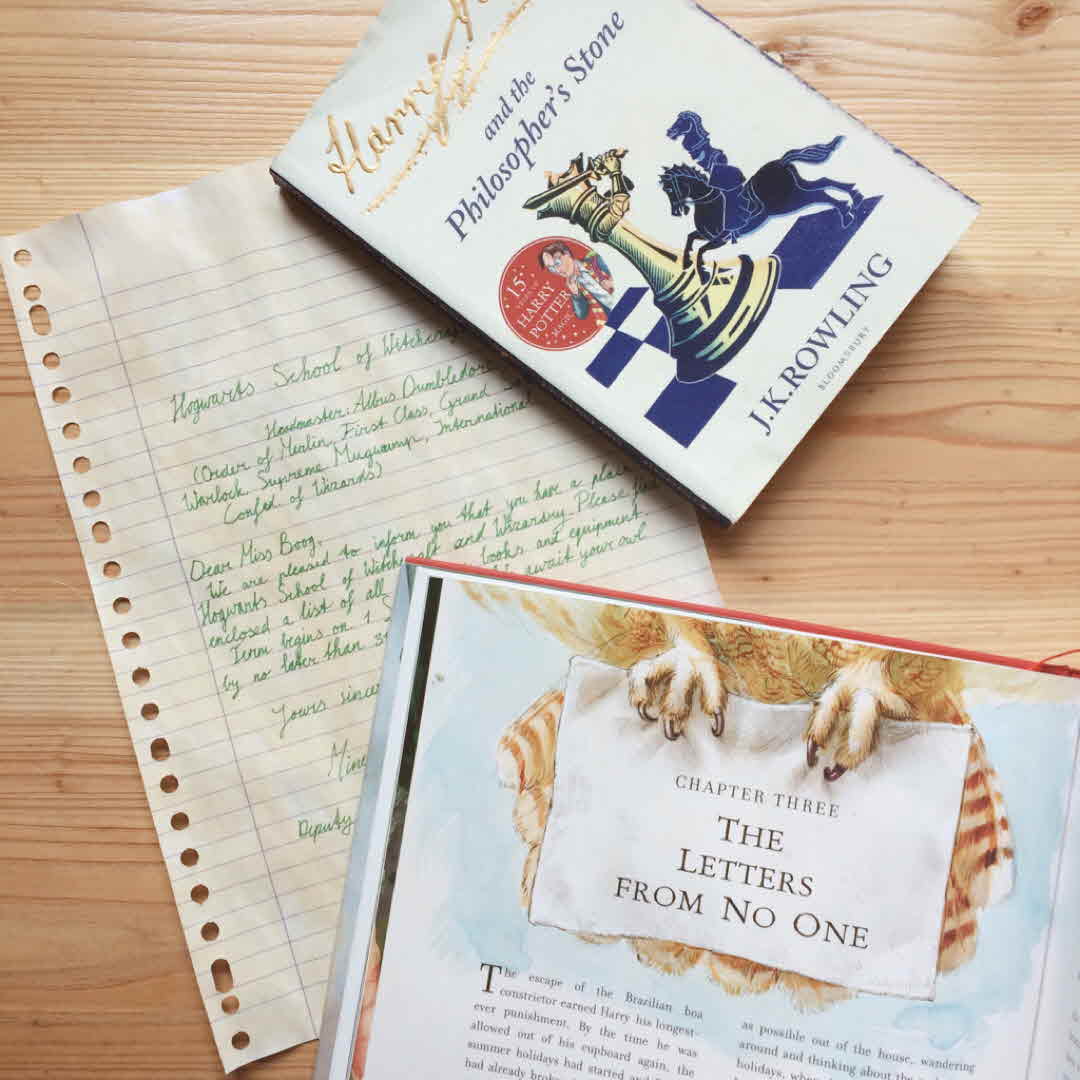 Harry
and the
Philosopher's Stone
15
YEARS OF
HARRY
POTTER
MAGIC
J.K.ROWLING
BLOOMSBURY
Hogwarts School of Witchcraft
Headmaster: Albus Dumbledore
(Order of Merlin, First Class, Grand
Warlock, Supreme Mugwump, International
Confed of Wizards)
Dear Miss Boog,
We are pleased to inform you that you have a place
Hogwarts School of Witchcraft and Wizardry. Please find
enclosed a list of all books and equipment.
Term begins on 1 await your owl
by no later than 31
Yours since
Mine
Deputy
CHAPTER THREE
THE
LETTERS
FROM NO ONE
The escape of the Brazilian boa
constrictor earned Harry his longest-
ever punishment. By the time he was
allowed out of his cupboard again, the
summer holidays had started and
had already broke
as possible out of the house, wandering
around and thinking about the
holidays, whe